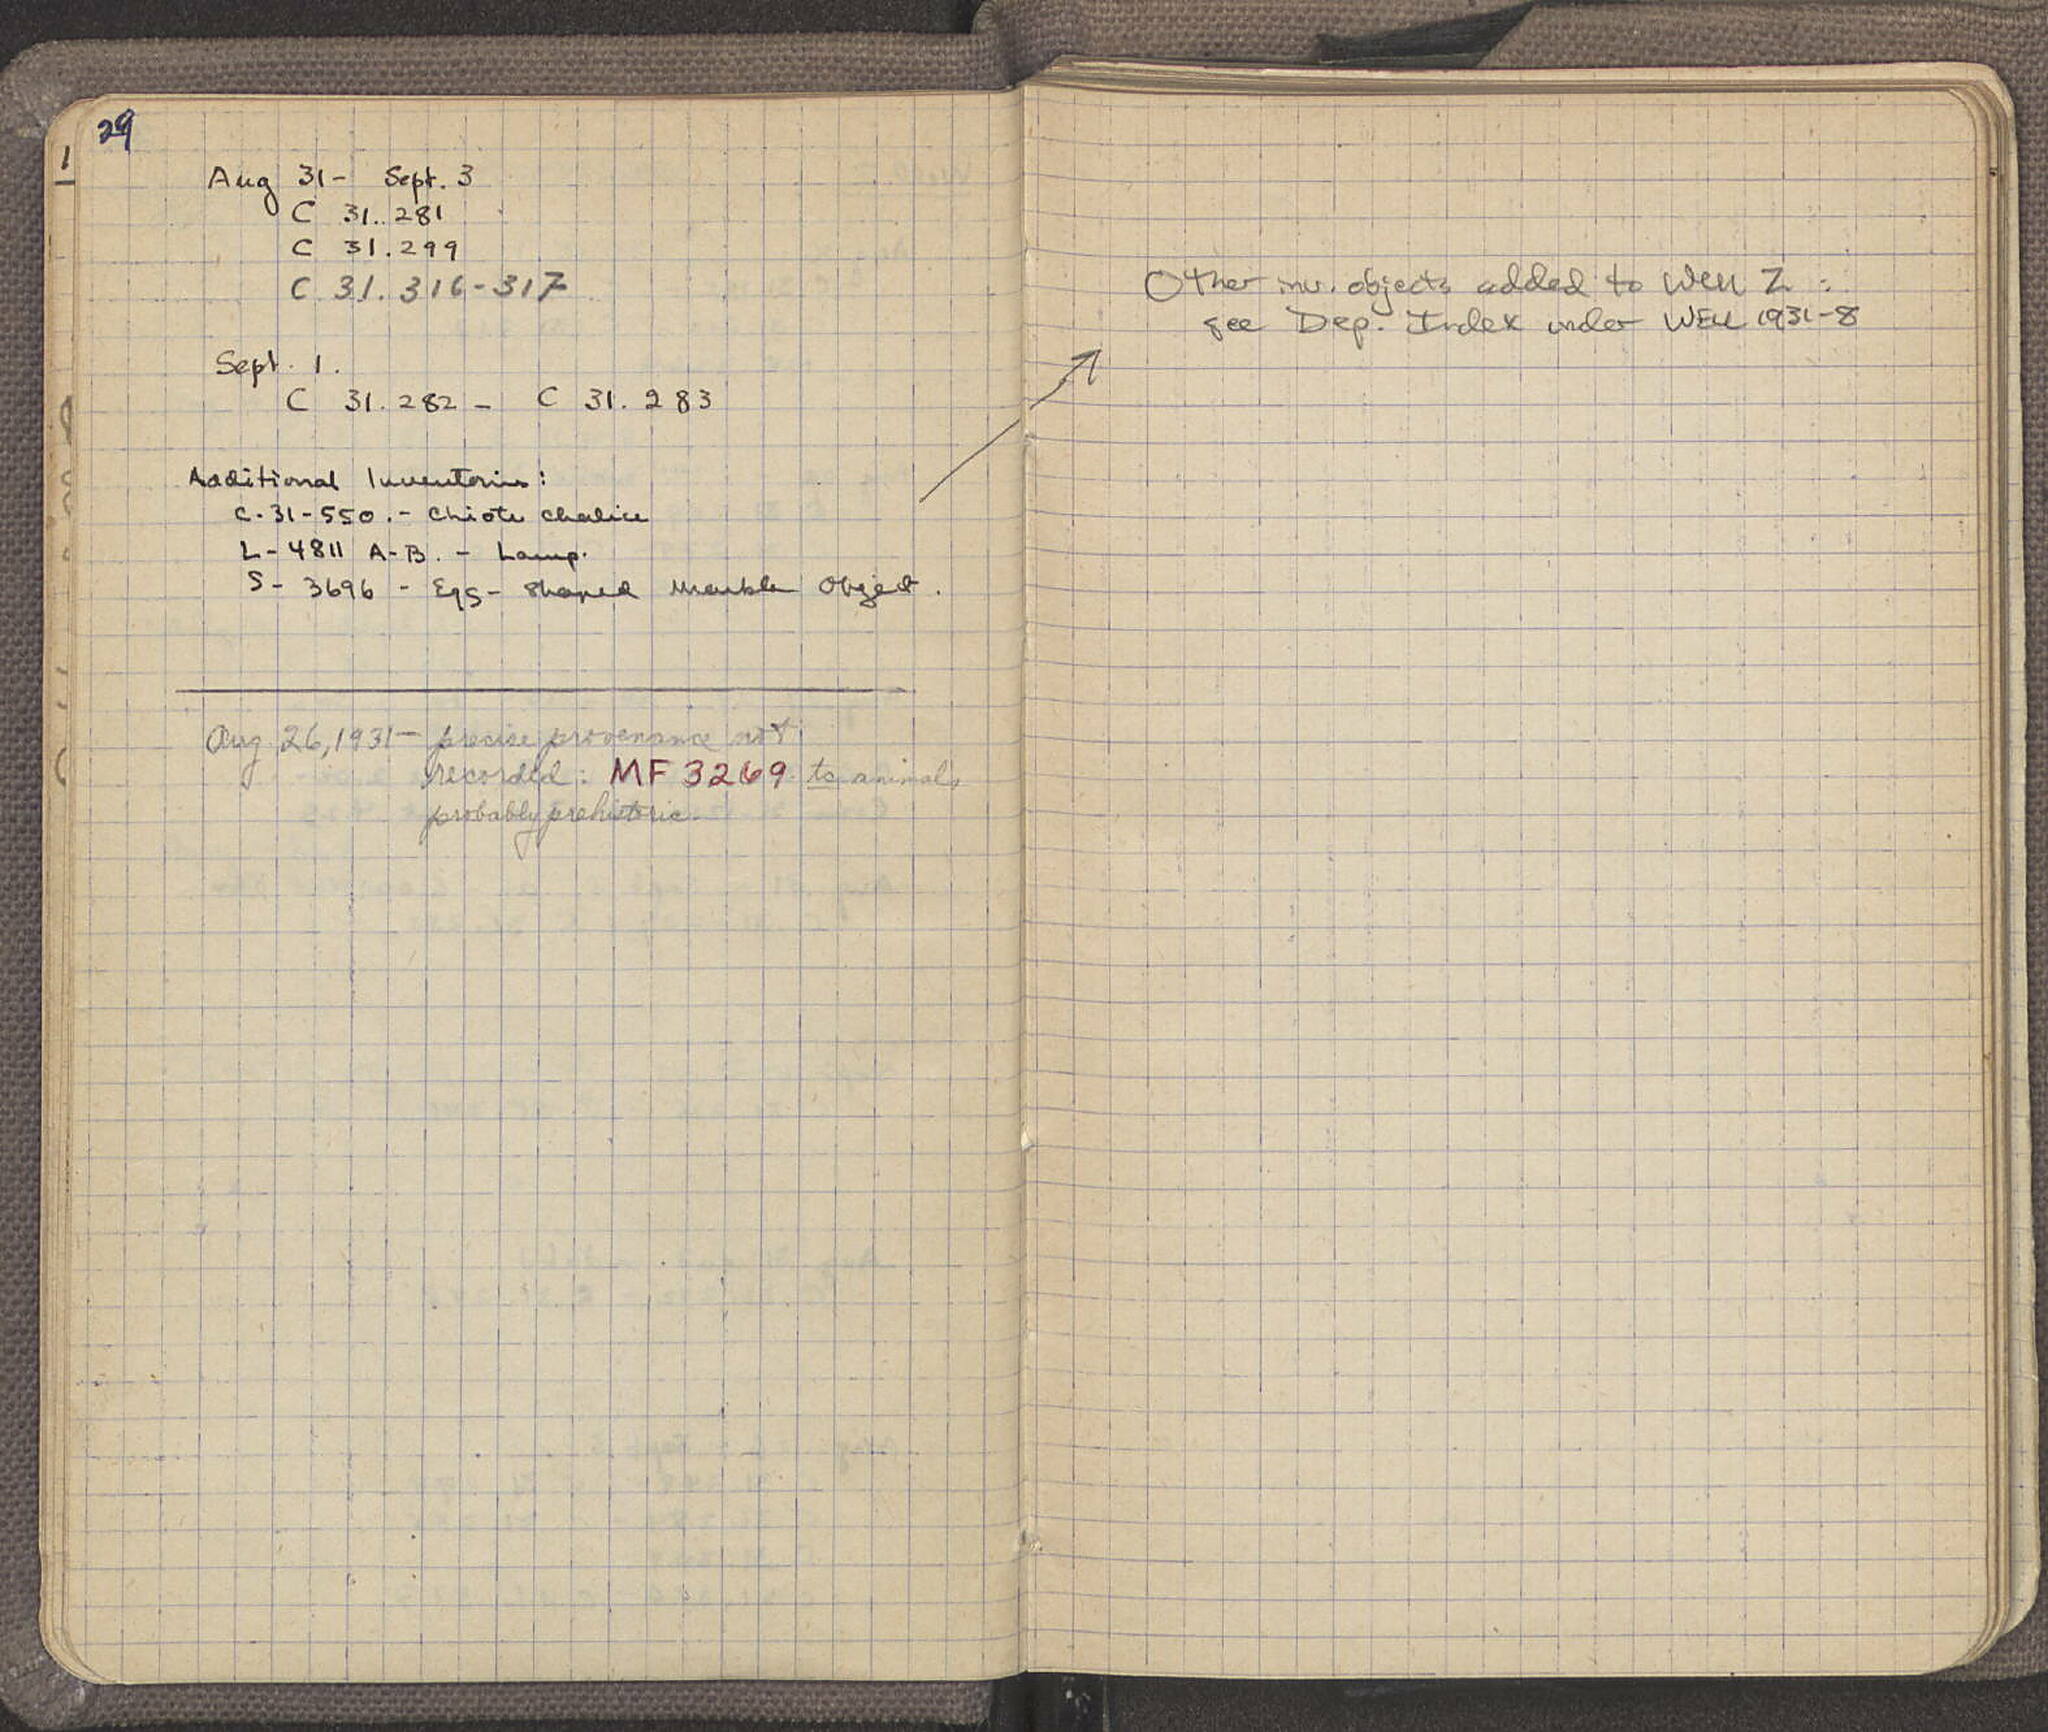 29
1
Aug 31- Sept. 3
C 31.281
C 31.299
C 31.316-317
Sept. 1.
C 31.282 - C 31.283
Additional Inventories:
C-31-550.- Chiote Chalice
L-4811 A-B. - Lamp.
S- 3696 - Egg- Shaped Marble Object.
Aug 26, 1931 - precise provenance not
recorded: MF 3269 tc animal,
probably prehistoric.
Other inv. objects added to Well Z :
see Dep. Index under WELL 1931-8